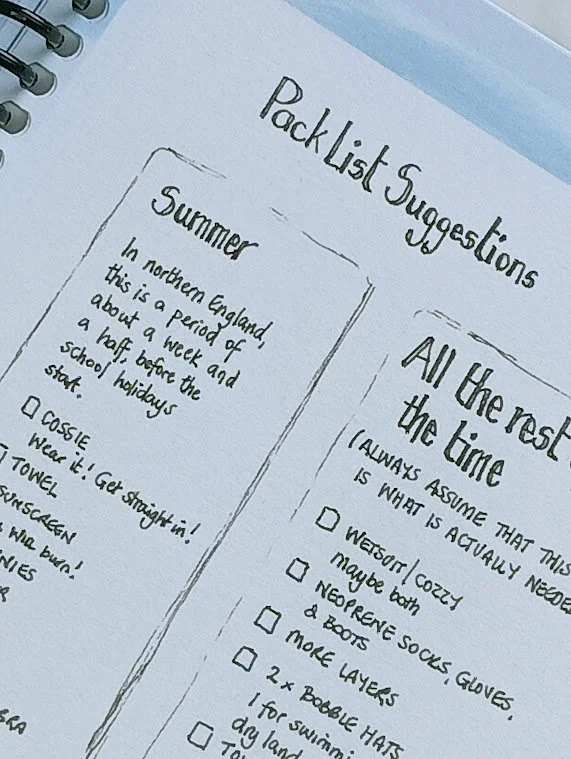 Pack List Suggestions
Summer
In northern England,
this is a period of
about a week and
a half, before the
school holidays
start.
COSSIE
Wear it! Get straight in!
TOWEL
SUNSCREEN
will burn!
All the rest
the time
(ALWAYS ASSUME THAT THIS
IS WHAT IS ACTUALLY NEEDED
WETSUIT/COZZY
maybe both
NEOPRENE SOCKS, GLOVES,
& BOOTS
MORE LAYERS
2x BOBBLE HATS
1 for swimmi
dry land